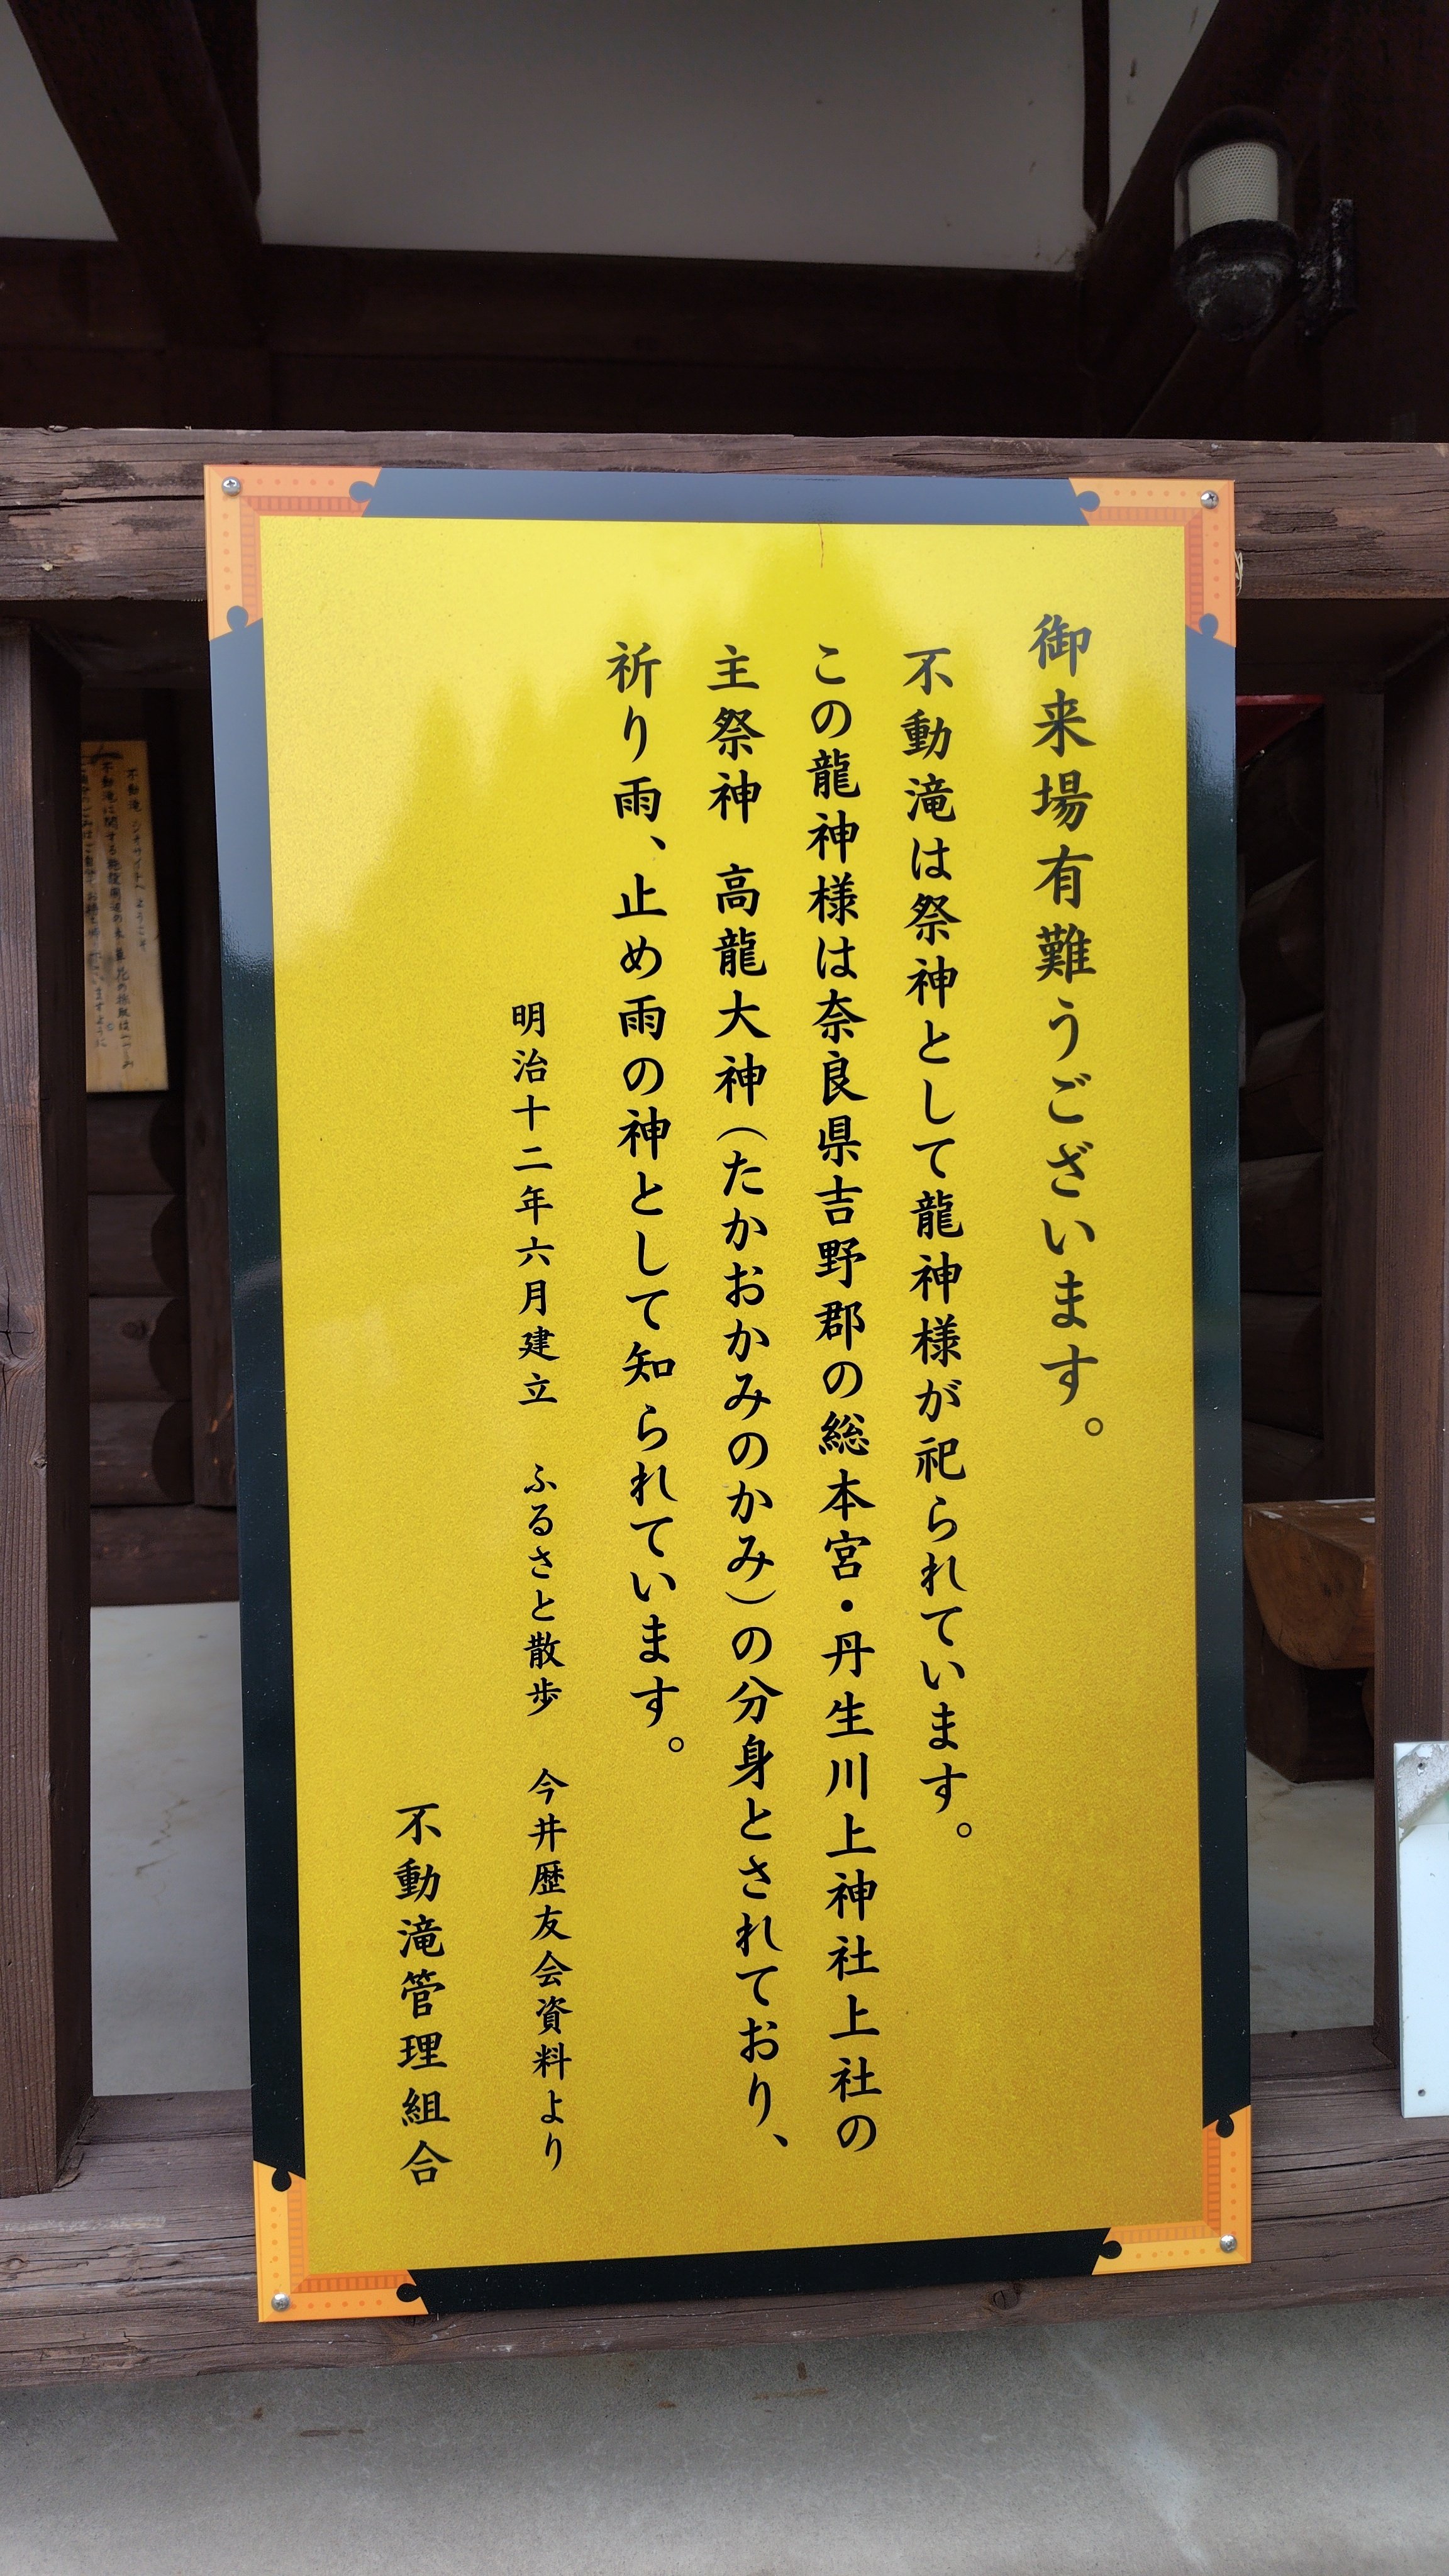 御来場有難うございます。
不動滝は祭神として龍神様が祀られています。
この龍神様は奈良県吉野郡の総本宮・丹生川上神社上社の
主祭神　高龍大神（たかおかみのかみ）の分身とされており、
祈り雨、止め雨の神として知られています。
明治十二年六月建立　ふるさと散歩　今井歴友会資料より
不動滝管理組合
不動滝　ジオサイトへ　ようこそ。